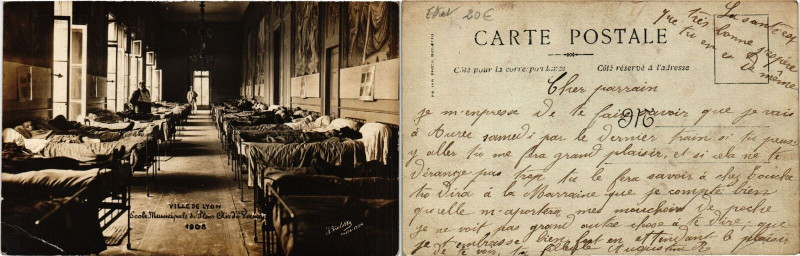 VILLE DE LYON
Ecole Municipale de Plein Air du Vernay
1908
20€
CARTE POSTALE
Côté pour la correspondance
Côté réservé à l'adresse
La santé est
très bonne j'espère
que tu en es de même
Cher parrain
je m'enpresse de te faire savoir que je vais
à Murée samedi par le dernier train si tu peux
y aller tu me fera grand plaisir, et si cela ne te
dérange pas trop tu le fera savoir à chez
tu dira à la Marraine que je compte bien
qu'elle m'aportera mes mouchoirs de poche
je ne voit pas grand autre chose à te dire, que
je t'embrasse bien fort en attendant le plaisir
de te voir, ta filleule Augustine